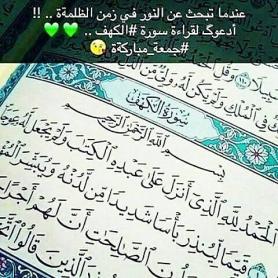 عندما تبحث عن النور في زمن الظلمة .. !!
أدعوگ لقراءة سورة #الكهف .. 💚 💚
#جمعة_مباركة 😘
سُورَةُ الكَهْفِ
بِسْمِ اللَّهِ الرَّحْمَٰنِ الرَّحِيمِ
الْحَمْدُ لِلَّهِ الَّذِي أَنزَلَ عَلَىٰ عَبْدِهِ الْكِتَابَ وَلَمْ يَجْعَل لَّهُ
قَيِّمًا لِّيُنذِرَ بَأْسًا شَدِيدًا مِّن لَّدُنْهُ وَيُبَشِّرَ الْمُؤ
نَ الصَّالِحَاتِ أَنَّ لَهُمْ أَجْرًا
الَّذِينَ قَالُوا اتَّخَ